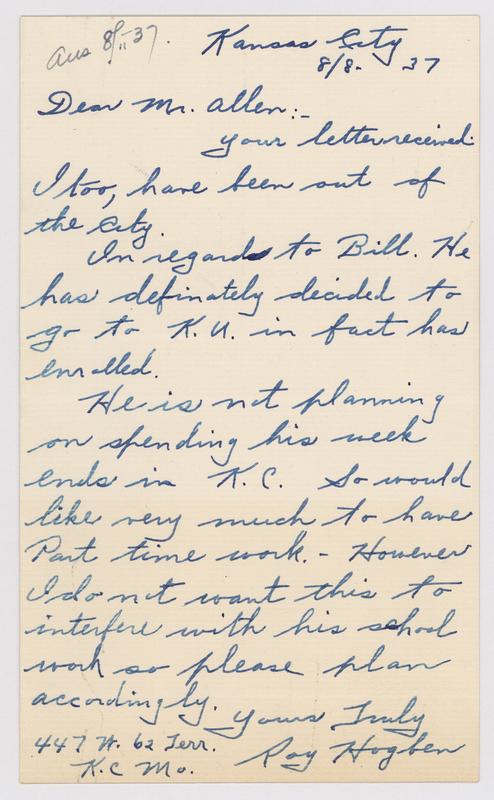 Ans 8/11-37.
Kansas City
8/8- 37
Dear Mr. Allen:-
your letter received.
I too, have been out of
the City.
In regards to Bill. He
has definately decided to
go to K.U. in fact has
enrolled.
He is not planning
on spending his week
ends in K.C. So would
like very much to have
Part time work. - However
I do not want this to
interfere with his school
work so please plan
accordingly.
yours Truly
447 W. 62 Terr. Roy Hogben
K.C Mo.